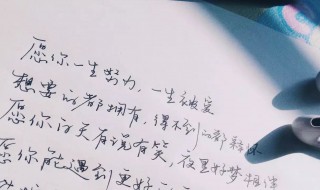 愿你一生努力，一生被爱
想要的都拥有，得不到的都释怀
愿你白天有说有笑，夜里好梦相
愿你能遇到更好